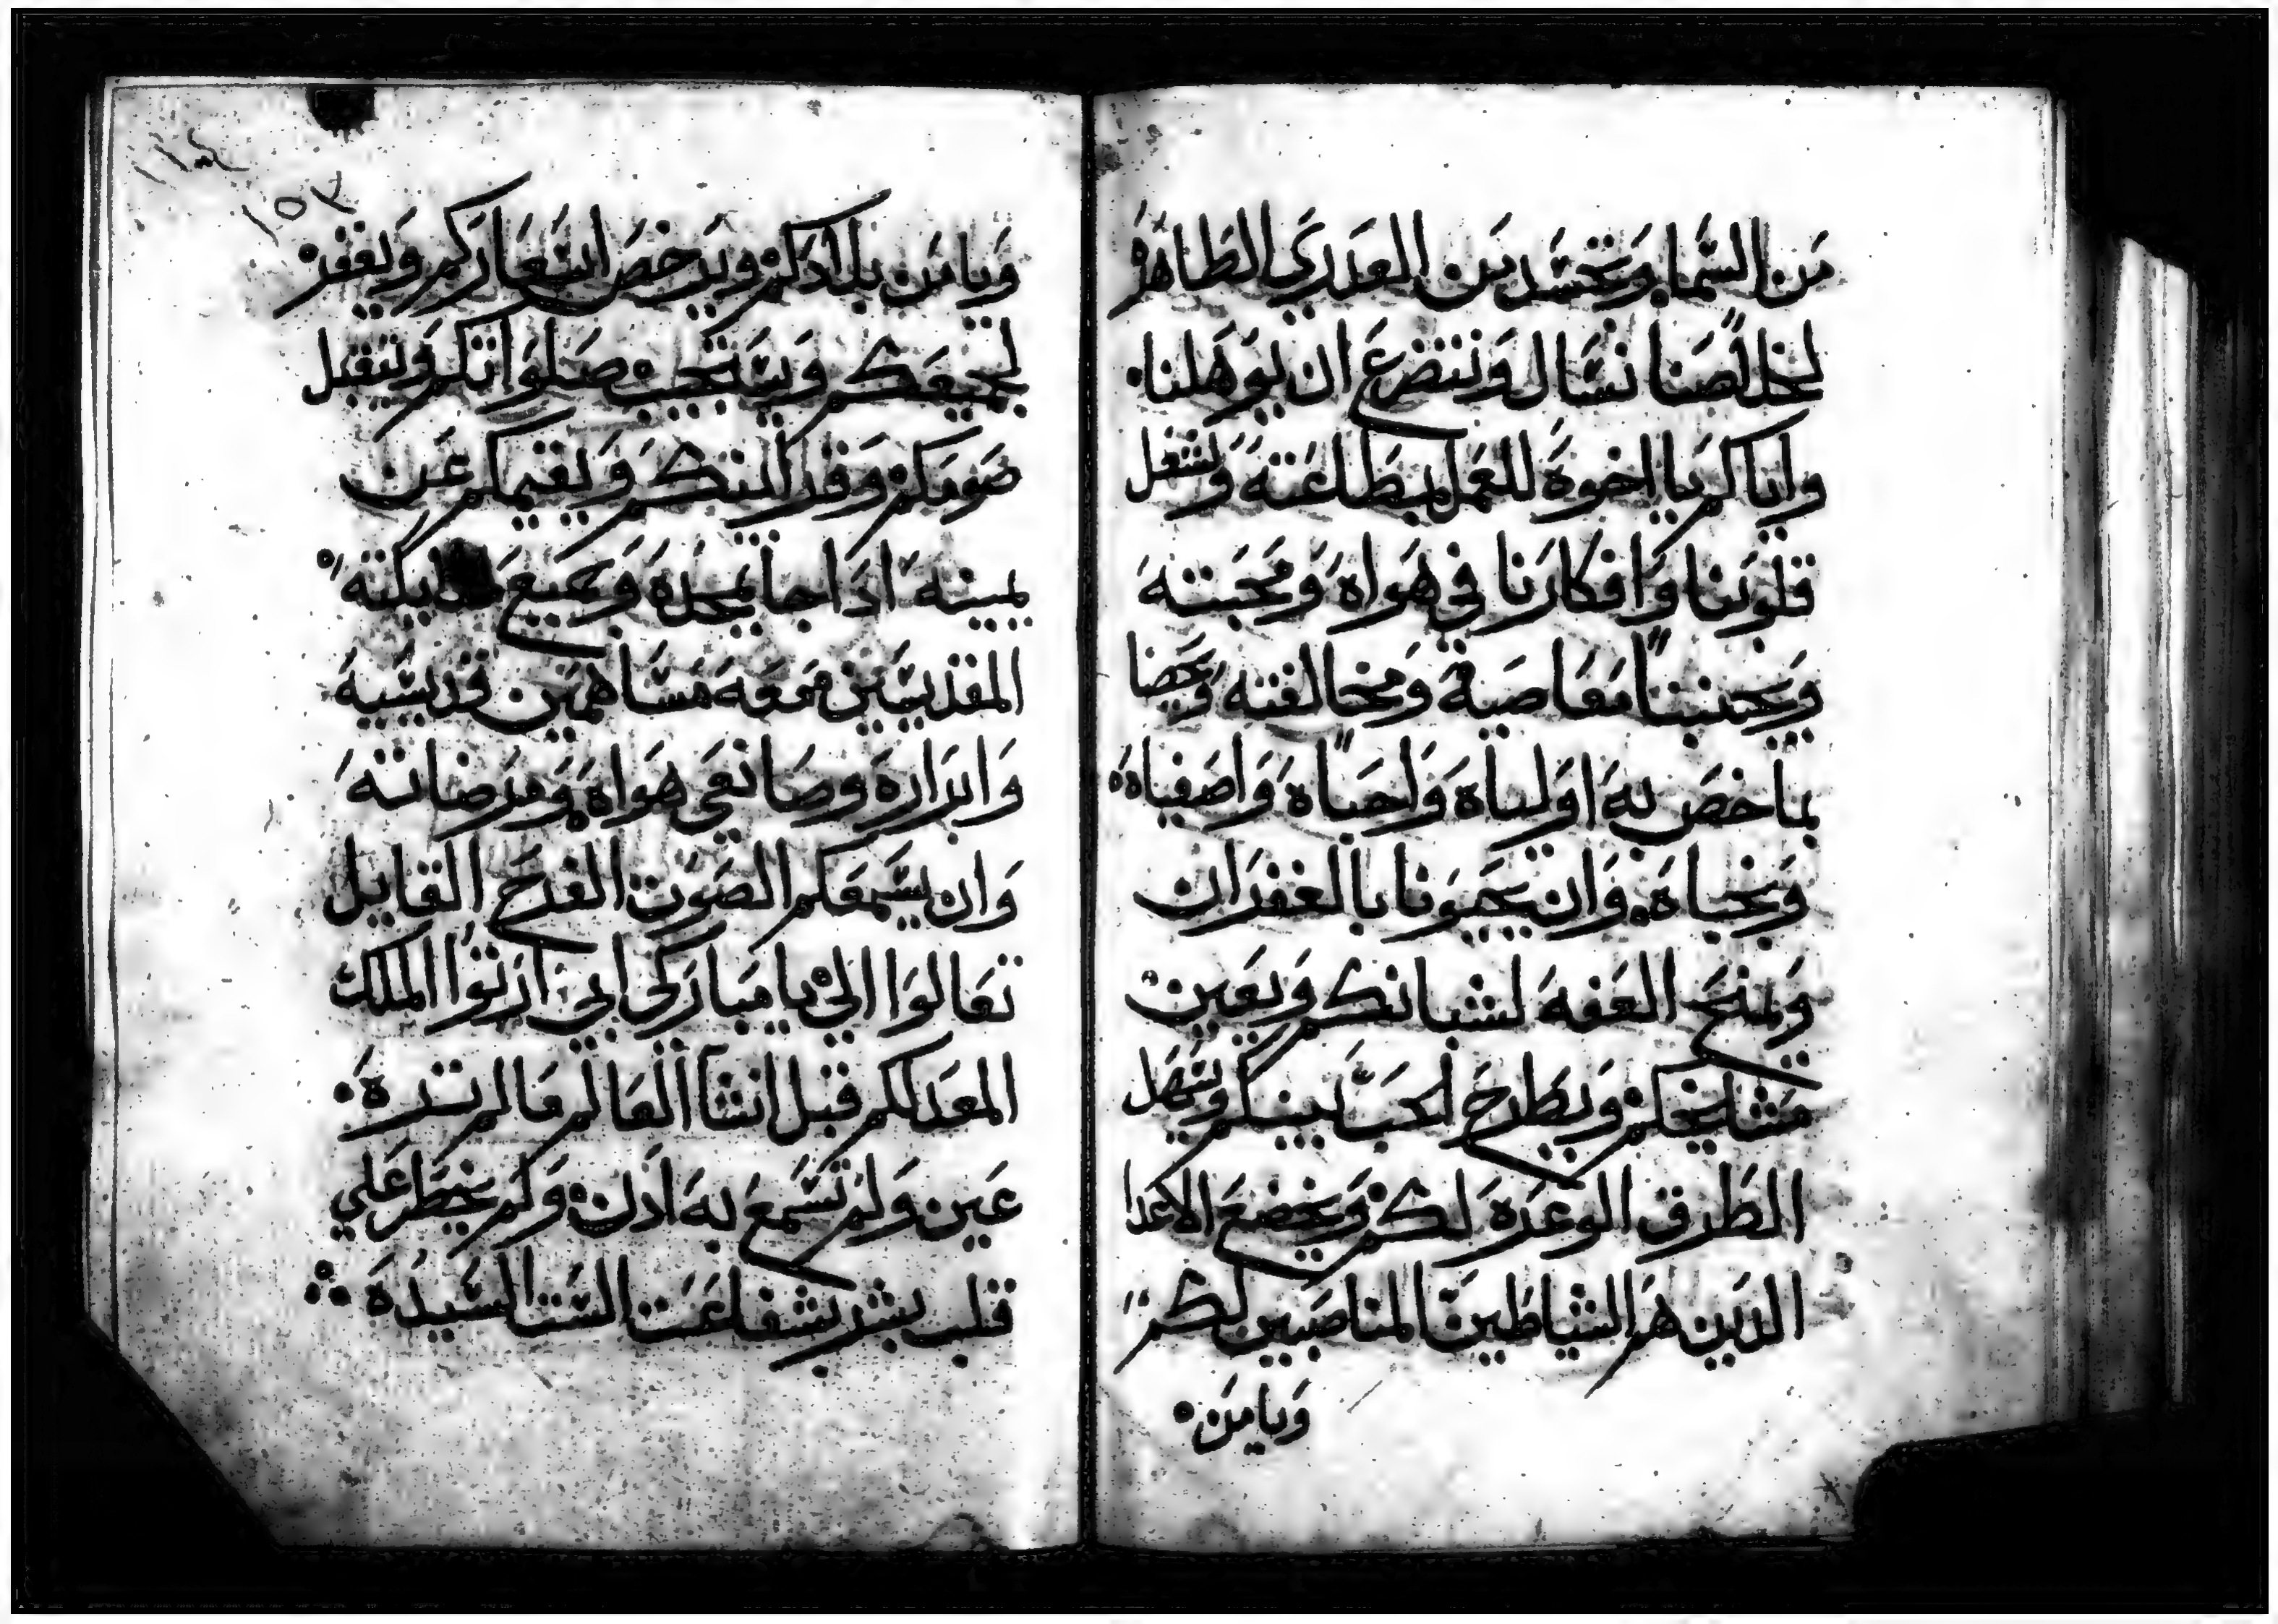 من السما وتجسد من العدري الطاهره
لخلاصنا نسال ونتضرع ان يوهلنا
واياكم يا اخوة للعمل بطاعته ويشغل
قلوبنا وافكارنا في هواه ومحبته
ويجنبنا معاصية ومخالفته ويحضا
بما خص به اولياه واحباه واصفياه
ونجباه وان يحبونا بالغفران
ويمنح العفه لشبانكم ويعين
مشايخكم ويطرح الحب بينكم ويسهل
الطرق الوعره لكم ويخضع الاعدا
الدين هم الشياطين المناصبين لكم
ويامن
ويامن بلادكم ويرخص اسعاركم ويغفر
لجميعكم ويستجيب صلواتكم ويتقبل
صومكم وقرابينكم ويقيمكم عن
يمينه ادا جا بمجده وجميع ملايكته
المقديسين معه مساهمين قديسيه
وابراره وصانعي هواه ومرضاته
وان يسمعكم الصوت الفرح القايل
تعالوا الي يا مباركي ابي ارثوا الملك
المعد لكم قبل انشا العالم مالم تره
عين ولم تسمع به ادن ولم يخطر علي
قلب بشر بشفاعت الستنا السيده